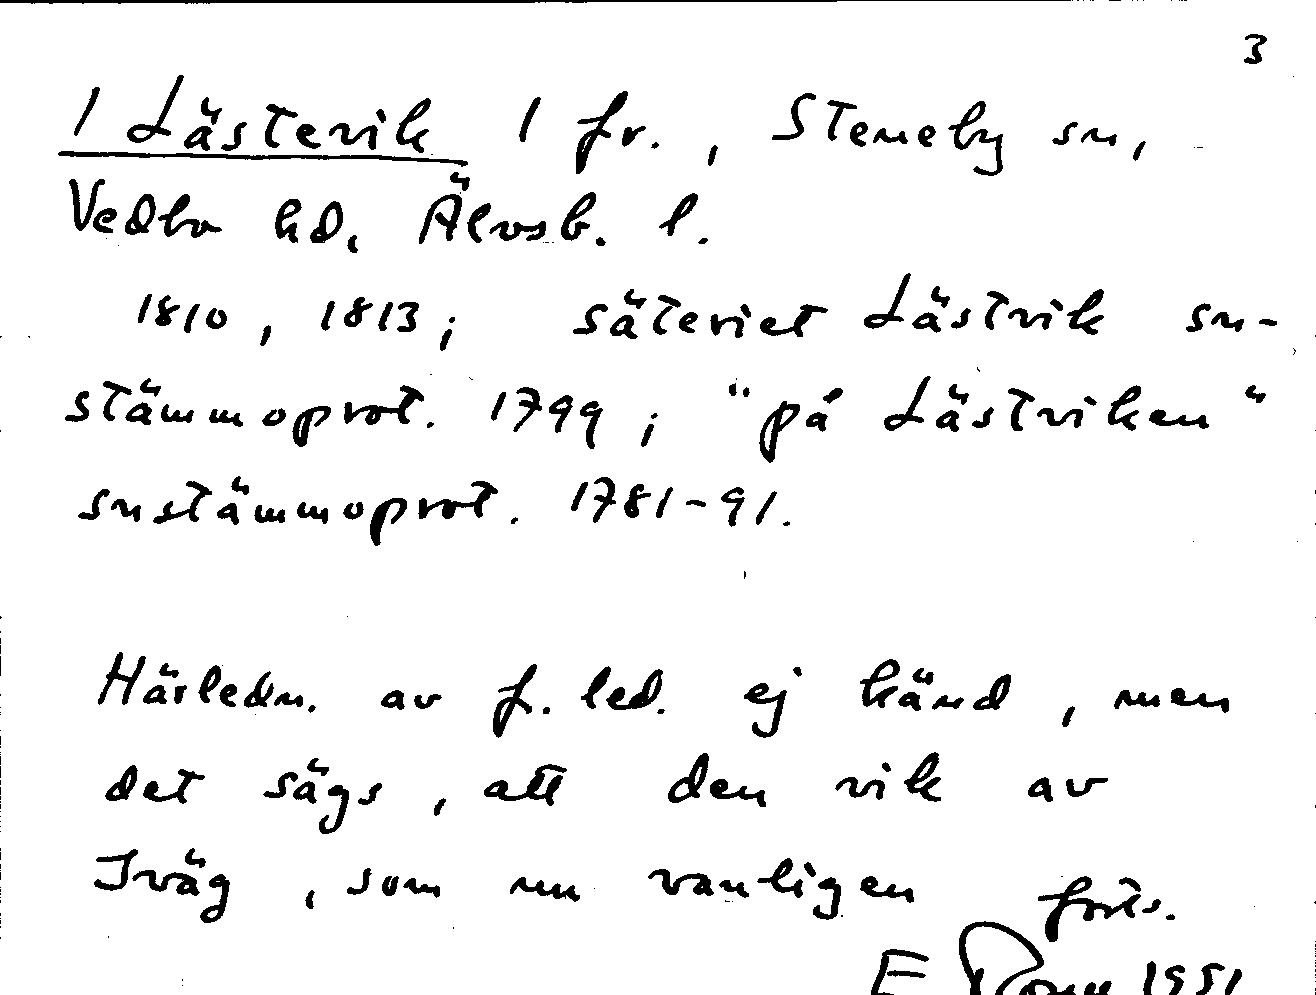 3
1 Lästerik 1 fr., Steneby sn,
Vedbo hd, Älvsb. l.
1810, 1813; säteriet Lästvik sn-
stämmoprot. 1799; "på Lästviken"
snstämmoprot. 1781-91.
Härledn. av f. led. ej känd, men
det sägs, att den vik av
Iväg, som nu vanligen forts.
E 1951